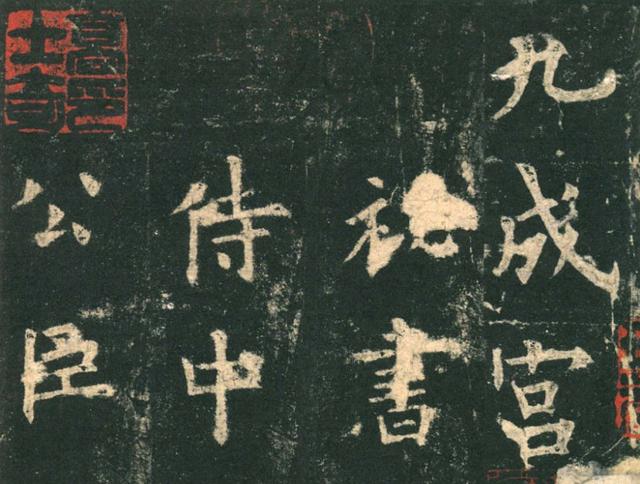 九成宮
祕書
侍中
公臣